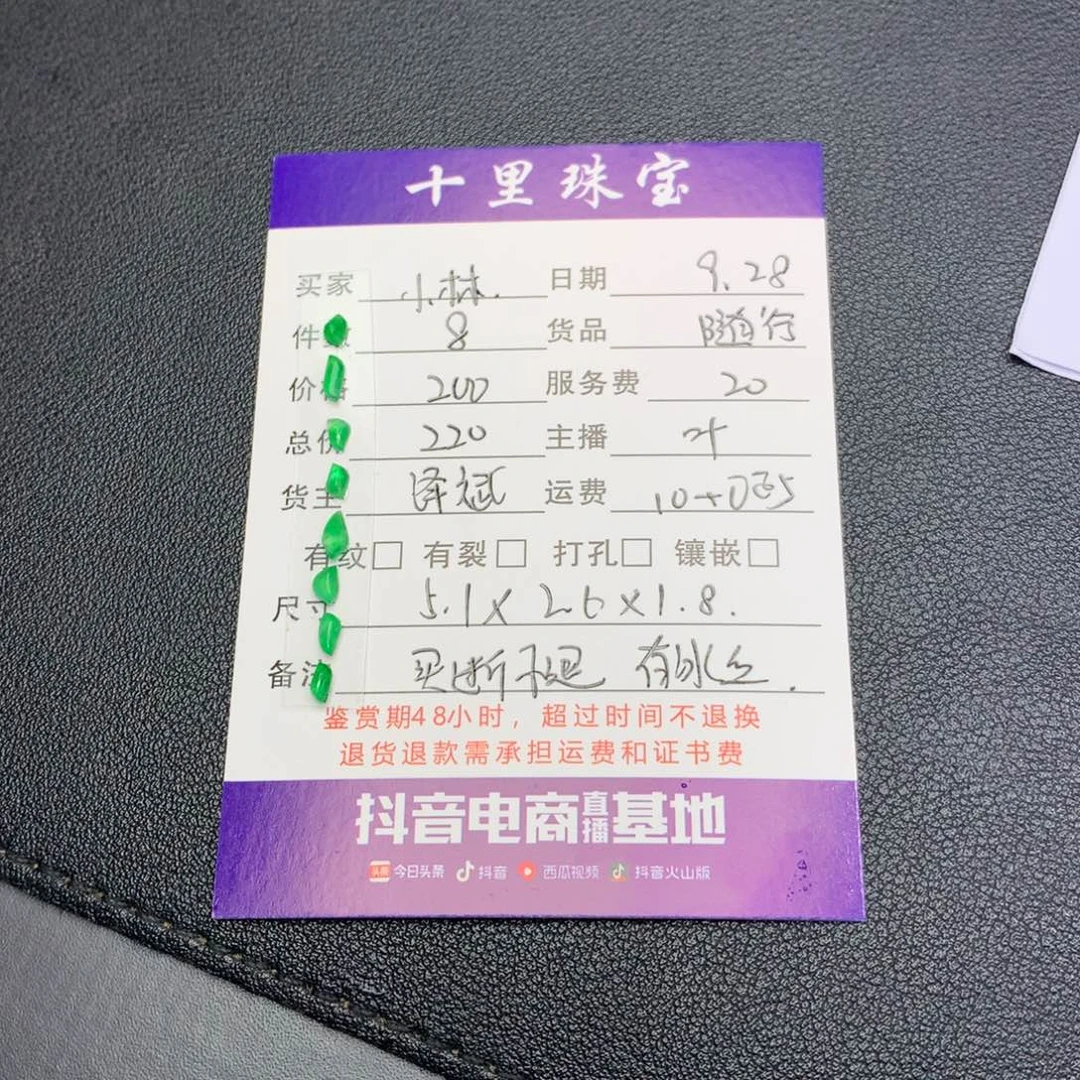 十里珠宝
买家 小林. 日期 9.28
件数 8 货品 随行
价格 200 服务费 20
总价 220 主播
货主 泽斌 运费 10+
有纹□ 有裂□ 打孔□ 镶嵌□
尺寸 5.1×2.6×1.8.
备注 买断不退 有
鉴赏期48小时，超过时间不退换
退货退款需承担运费和证书费
抖音电商直播基地
头条 今日头条 抖音 西瓜视频 抖音火山版